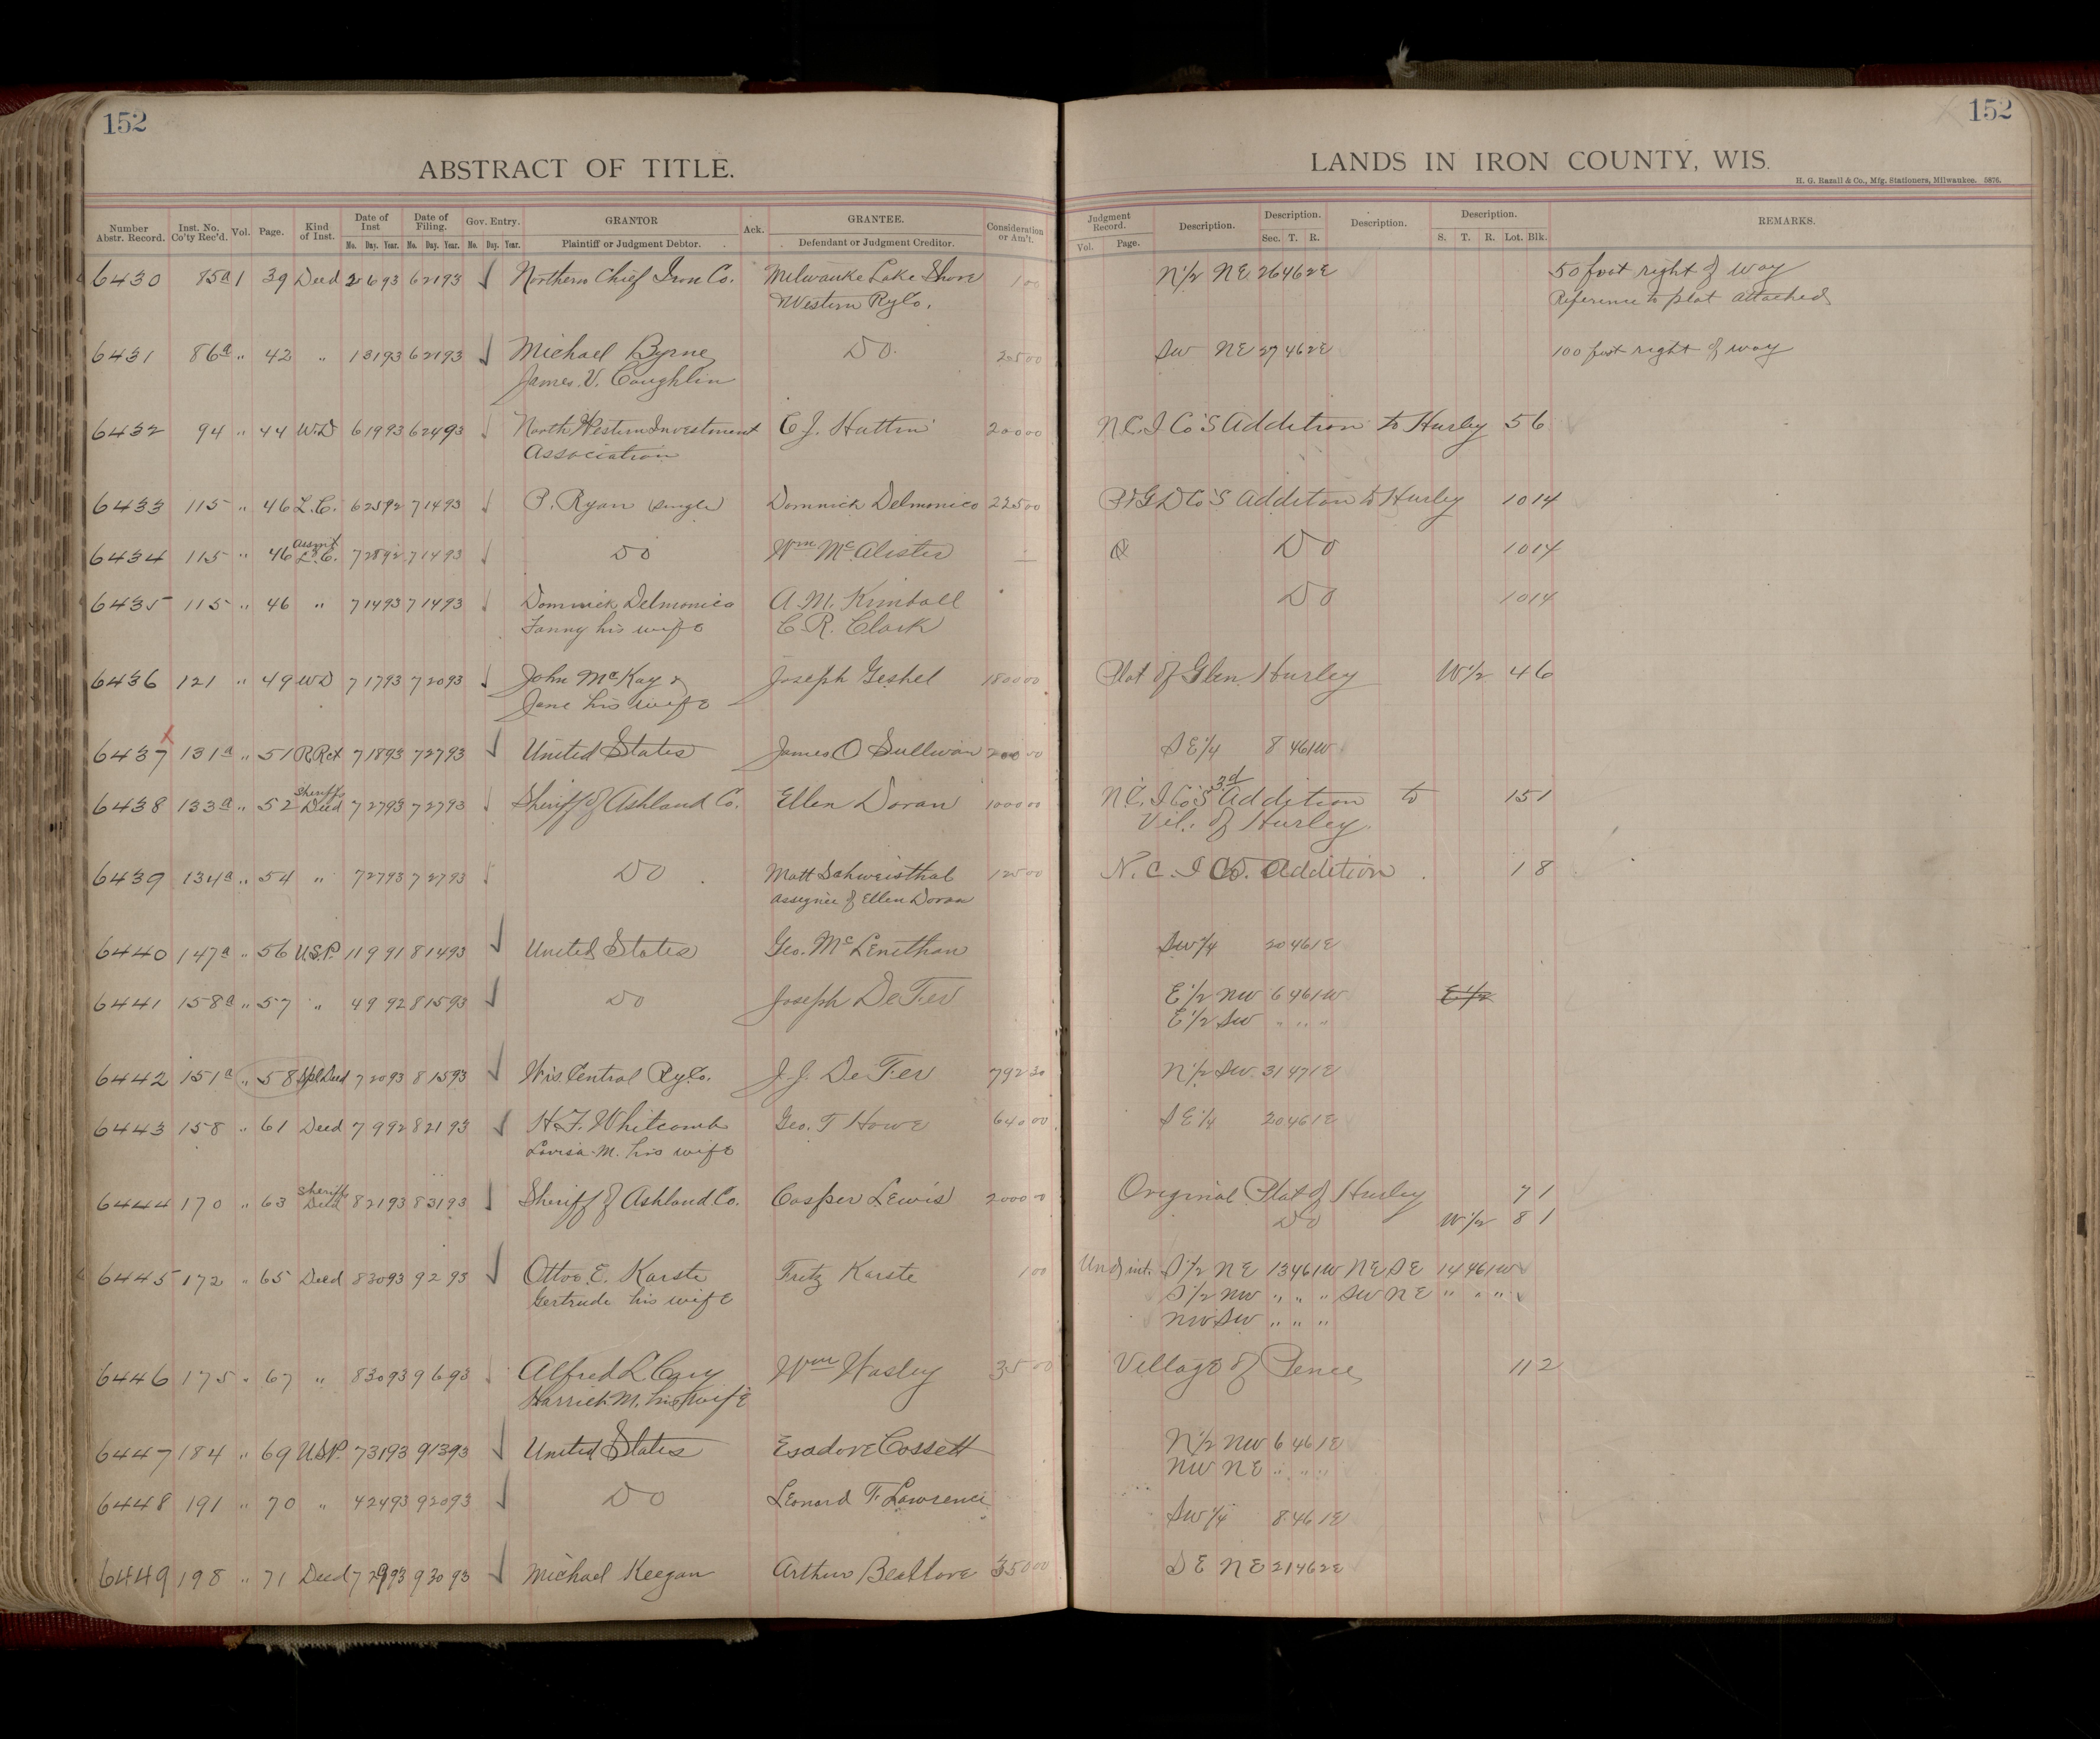 152
152
ABSTRACT OF TITLE.
LANDS IN IRON COUNTY, WIS.
H. G. Razall & Co., Mfg. Stationers, Milwaukee. 5876.
Number Abstr. Record. Inst. No. Co'ty Rec'd. Vol. Page. Kind of Inst. Date of Inst Mo. Day. Year. Date of Filing. Mo. Day. Year. Gov. Entry. Mo. Day. Year. GRANTOR Plaintiff or Judgment Debtor. Ack. GRANTEE. Defendant or Judgment Creditor. Consideration or Am't. Judgment Record. Vol. Page. Description. Description. Sec. T. R. Description. Description. S. T. R. Lot. Blk. REMARKS.
6430 85a 1 39 Deed 2 6 93 6 21 93 Northern Chief Iron Co. Milwauke Lake Shore 1 00 N 1/2 NE 26 46 2E 50 foot right of way
Western Ry Co. Reference to plat attached
6431 86a " 42 " 1 31 93 6 21 93 Michael Byrne Do. 25 00 SW NE 27 46 2E 100 foot right of way
James. V. Coughlin
6432 94 " 44 W.D 6 19 93 6 24 93 North Western Investment C. J. Huttin 200 00 N.C.I Co's Addition to Hurley 5 6
Association
6433 115 " 46 L.C. 6 25 92 7 14 93 P. Ryan (single) Domnick Delmonico 225 00 Addition to Hurley 10 14
6434 115 " 46 Assmt L.C. 7 28 92 7 14 93 Do Wm McAlister — Do 10 14
6435 115 " 46 " 7 14 93 7 14 93 Domnick Delmonico A. M. Kimball Do 10 14
Fanny his wife C. R. Clark
6436 121 " 49 WD 7 17 93 7 20 93 John McKay & Joseph Geshel 1800 00 Plat of Glen Hurley W 1/2 4 6
Jane his wife
6437 131a " 51 R Rct 7 18 93 7 27 93 United States James O Sullivan 200 00 SE 1/4 8 46 1W
6438 133a " 52 Sheriffs Deed 7 27 93 7 27 93 Sheriff of Ashland Co. Ellen Doran 1000 00 N.C.I Co's 3d Addition to 15 1
Vil. of Hurley.
6439 134a " 54 " 7 27 93 7 27 93 Do Matt Schweisthal 125 00 N. C. I Co. Addition 1 8
assignee of Ellen Doran
6440 147a " 56 U.S.P. 11 9 91 8 14 93 United States Geo. McLenithan SW 1/4 20 46 1E
6441 158a " 57 " 4 9 92 8 15 93 Do Joseph DeFer E 1/2 NW 6 46 1W E 1/2
E 1/2 SW " " "
6442 151a " 58 Spl Deed 7 20 93 8 15 93 Wis. Central Ry Co. J. J. DeFer 792 30 N 1/2 SW 31 47 1E
6443 158 " 61 Deed 7 9 92 8 21 93 H. F. Whitcomb Geo. T Howe 640 00 SE 1/4 20 46 1E
Lovisa M. his wife
6444 170 " 63 Sheriffs Deed 8 21 93 8 31 93 Sheriff of Ashland Co. Casper Lewis 2000 00 Original Plat of Hurley 7 1
Do W 1/2 8 1
6445 172 " 65 Deed 8 30 93 9 2 93 Ottoo. E. Karste Fritz Karste 1 00 Und. int. S 1/2 NE 13 46 1W NE SE 14 46 1W
Gertrude his wife S 1/2 NW " " " SW NE " " "
NW SW " " "
6446 175 " 67 " 8 30 93 9 6 93 Alfred L Cary Wm Wasley 35 00 Village of Pence 11 2
Harriet M. his wife
6447 184 " 69 U.S.P. 7 31 93 9 13 93 United States Esadore Cossett N 1/2 NW 6 46 1E
NW NE " " "
6448 191 " 70 " 4 24 93 9 20 93 Do Leonard F. Lawrence SW 1/4 8 46 1E
6449 198 " 71 Deed 7 29 93 9 30 93 Michael Keegan Arthur 350 00 SE NE 21 46 2E